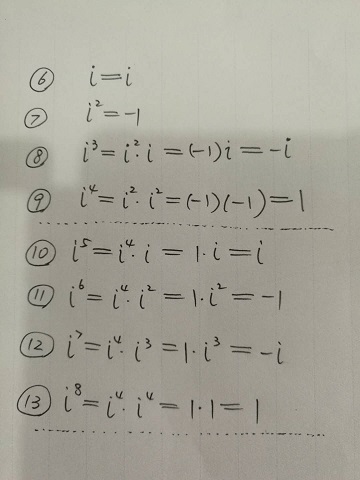 ⑥ i = i
⑦ i² = -1
⑧ i³ = i²· i = (-1)i = -i
⑨ i⁴ = i² · i² = (-1)(-1) = 1
⑩ i⁵ = i⁴ · i = 1 · i = i
⑪ i⁶ = i⁴ · i² = 1 · i² = -1
⑫ i⁷ = i⁴ · i³ = 1 · i³ = -i
⑬ i⁸ = i⁴ · i⁴ = 1 · 1 = 1